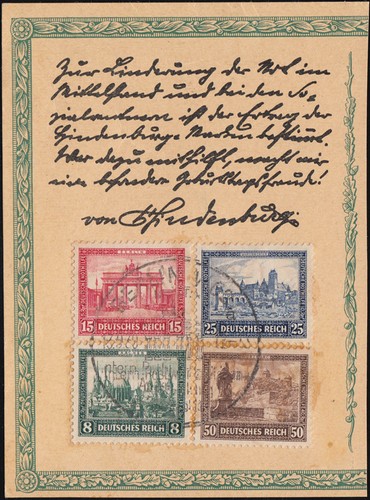 Zur Linderung der Not im
Mittelstand und bei den So-
zialrentnern ist der Ertrag der
Hindenburg-Marken bestimmt.
Wer dazu mithilft, macht mir
eine besondere Geburtstagsfreude!
von Hindenburg.
15 DEUTSCHES REICH 15
25 DEUTSCHES REICH 25
8 DEUTSCHES REICH 8
50 DEUTSCHES REICH 50